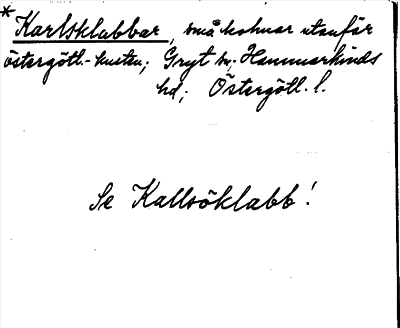 * Karlsklabbar, små holmar utanför
östergötl.-kusten; Gryt sn; Hammarkinds
hd; Östergötl. l.
Se Kallsöklabb!